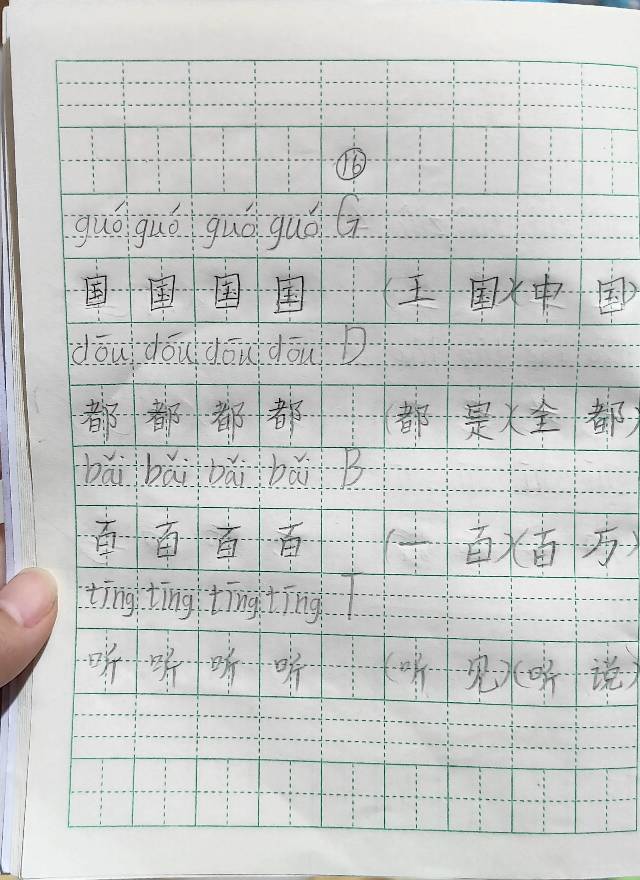 ⑯
guó guó guó guó G
国 国 国 国 (王国)(中国)
dōu dōu dōu dōu D
都 都 都 都 (都是)(全都)
bǎi bǎi bǎi bǎi B
百 百 百 百 (一百)(百万)
tīng tīng tīng tīng T
听 听 听 听 (听见)(听说)